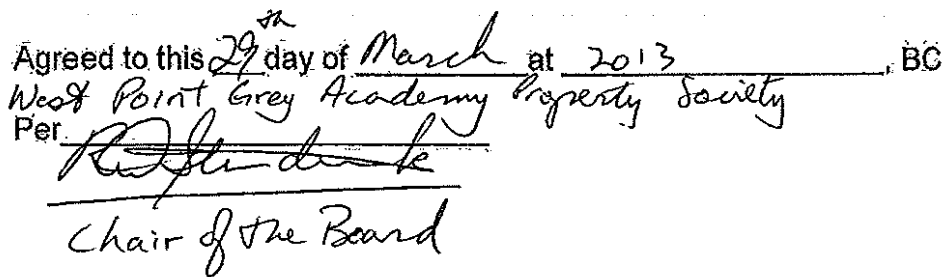 Agreed to this 29th day of March at 2013, BC
West Point Grey Academy Property Society
Per
Chair of the Board